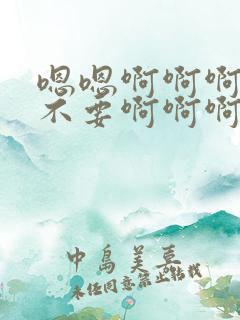 嗯嗯啊啊啊
不要啊啊啊
中岛美亘
未经同意禁止转载